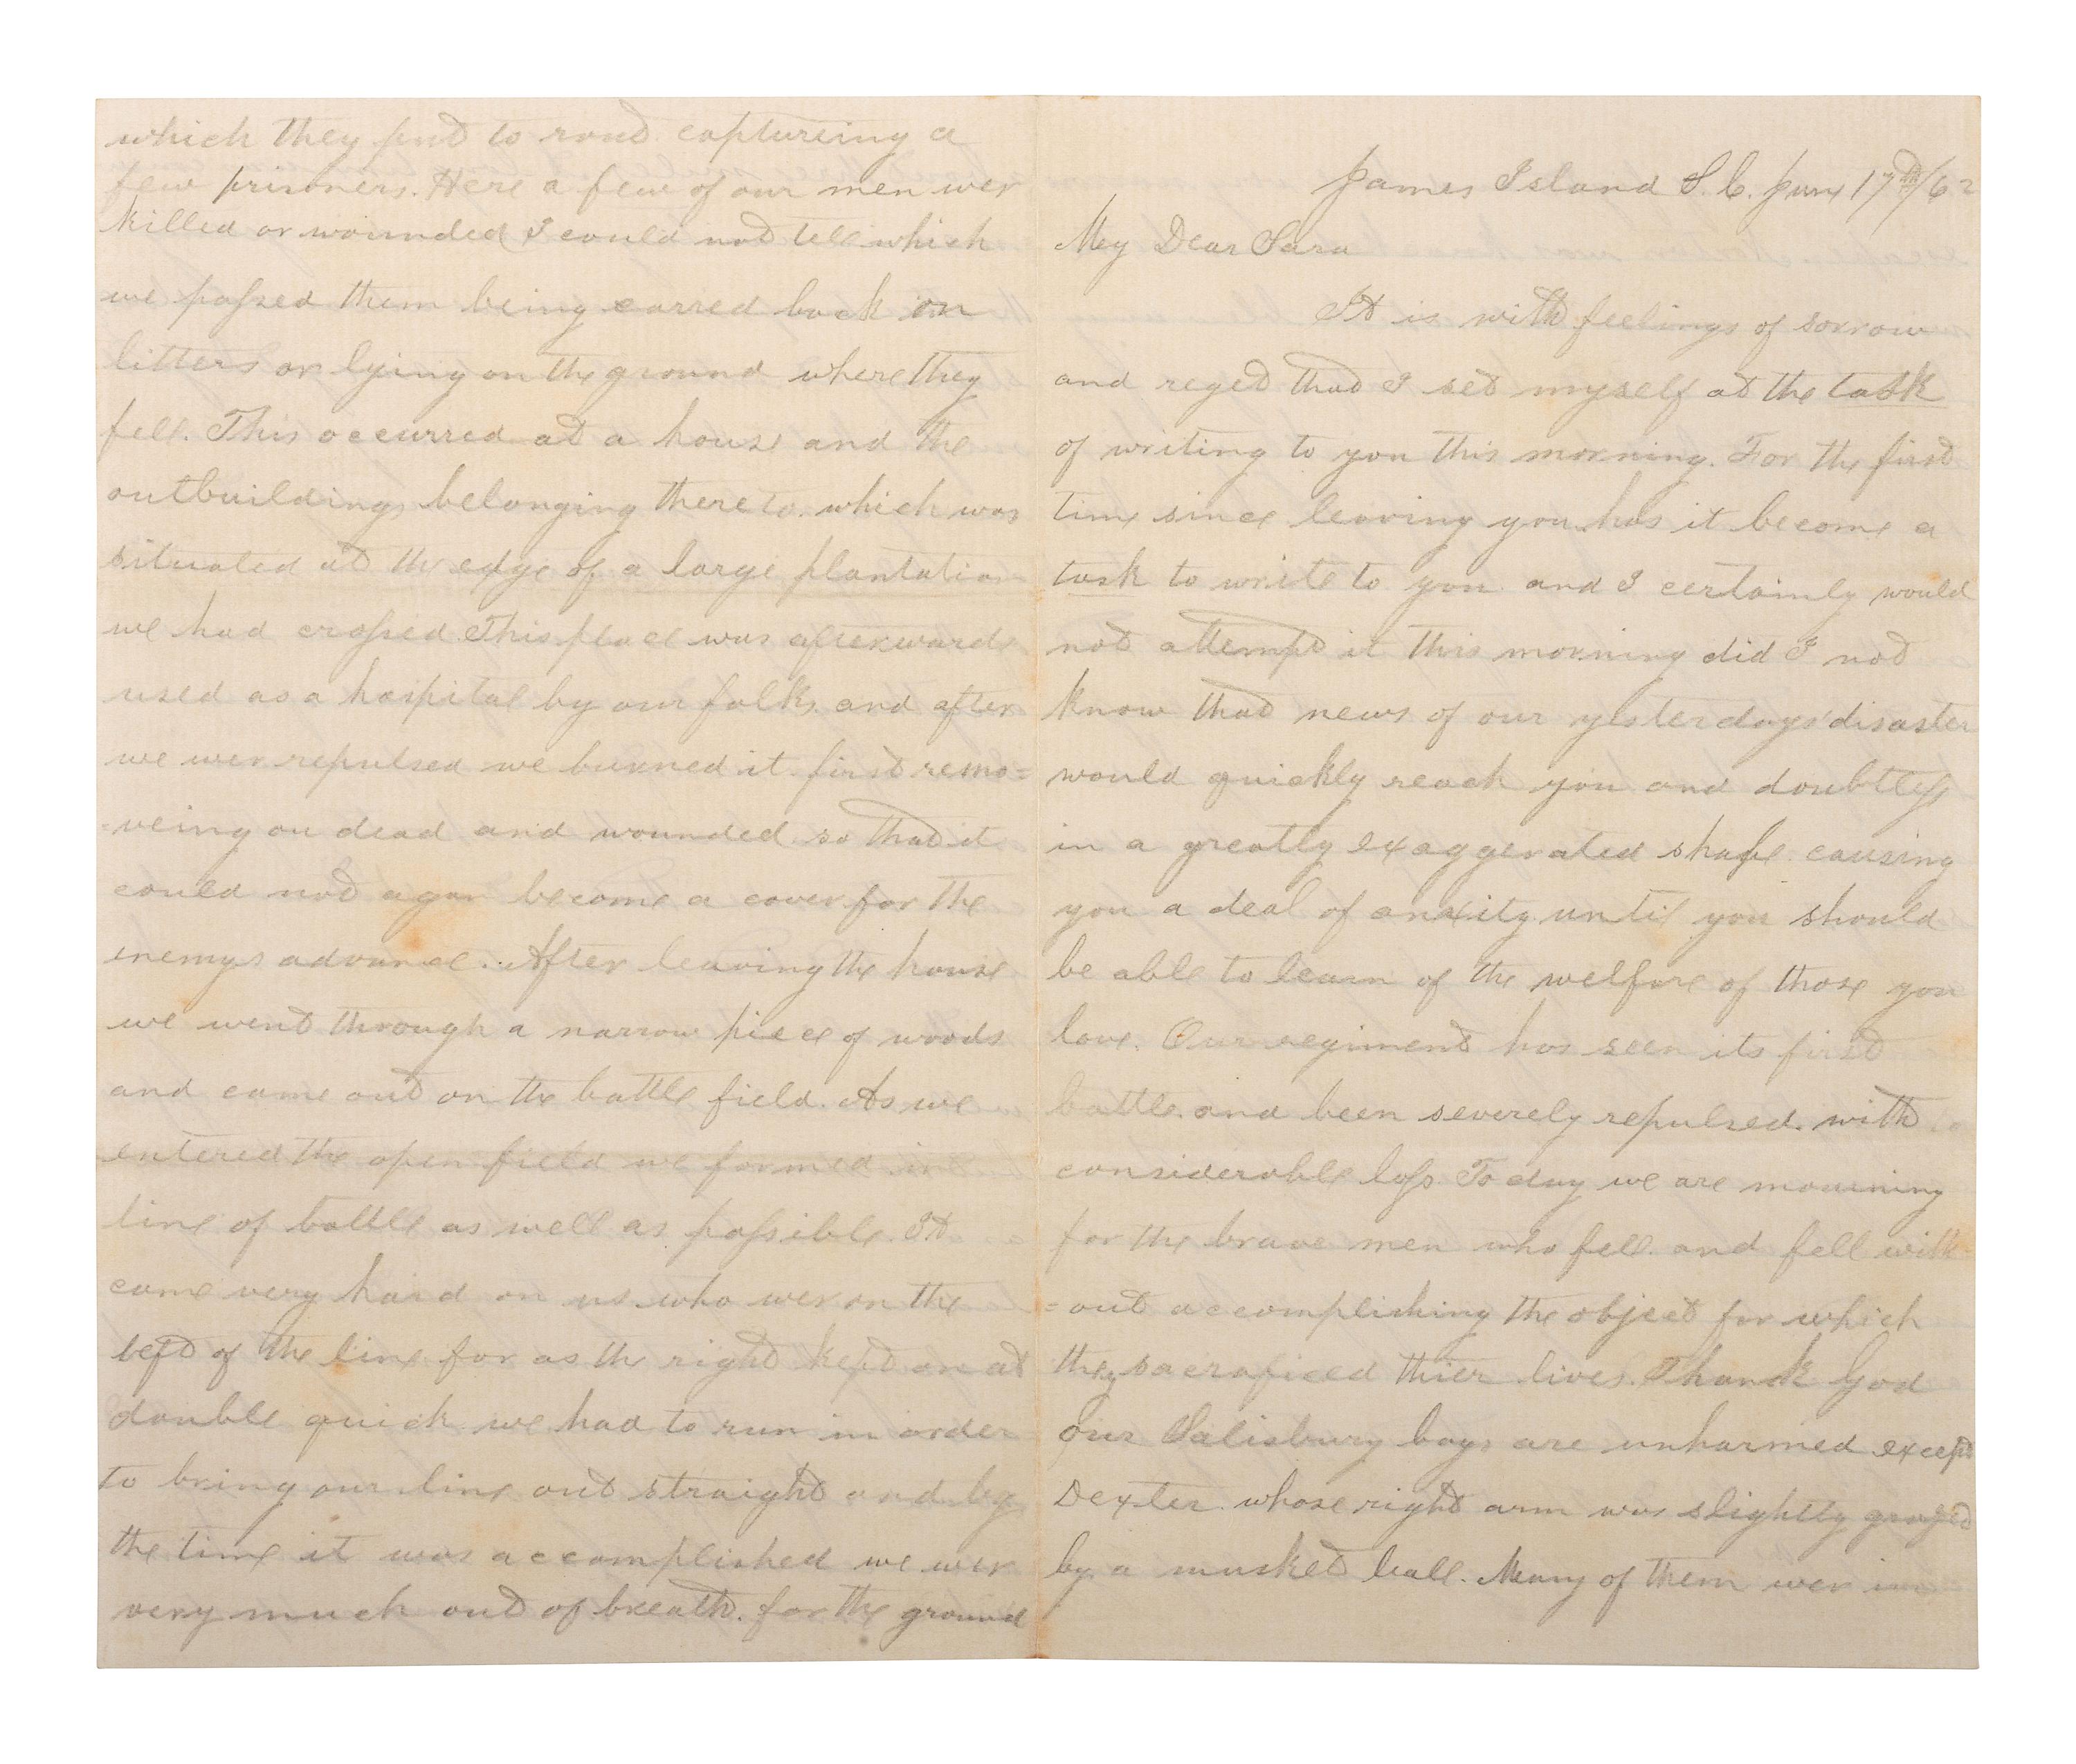 James Island S.C. June 17th/62
My Dear Sara
It is with feelings of sorrow
and reget that I set myself at the task
of writing to you this morning. For the first
time since leaving you has it become a
task to write to you and I certainly would
not attempt it this morning did I not
know that news of our yesterdays disaster
would quickly reach you and doubtless
in a greatly exaggerated shape causing
you a deal of anxity until you should
be able to learn of the welfare of those you
love. Our regiment has seen its first
battle and been severely repulsed with
considerable loss To day we are mourning
for the brave men who fell and fell with
=out accomplishing the object for which
they sacraficed thier lives. Thank God
our Salisbury boys are unharmed except
Dexter whose right arm was slightly grazed
by a musket ball. Many of them wer in
which they put to rout captureing a
few prisoners. Here a few of our men wer
killed or wounded I could not tell which
we passed them being carred back on
litters or lying on the ground where they
fell. This occurred at a house and the
outbuildings belonging thereto which was
situated at the edge of a large plantation
we had crossed This place was afterwards
used as a hospital by our folks and after
we wer repulsed we burned it first remo=
=veing ou dead and wounded so that it
could not agan become a cover for the
enemys advance. After leaving the house
we went through a narrow piece of woods
and came out on the battle field. As we
entered the open field we formed in
line of battle as well as possible. It
came very hard on us who wer on the
left of the line for as the right kept on at
double quick we had to run in order
to bring our line out straight and by
the time it was accomplished we wer
very much out of breath. for the ground